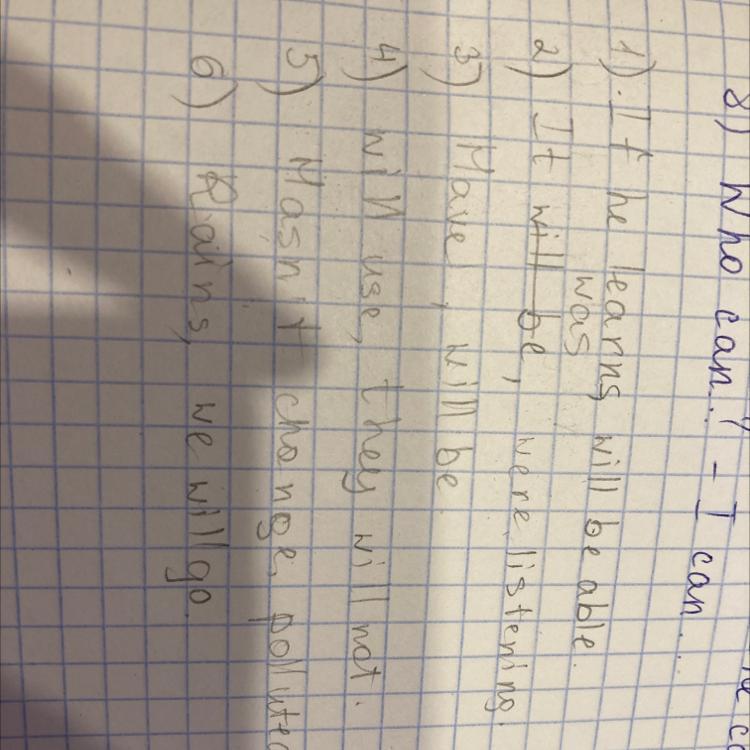 8) Who can? - I can...
1). If he learns, will be able.
was
2) It will be, were listening.
3) Have, will be.
4) will use, they will not.
5) Hasn't change,
6) Rains, we will go.